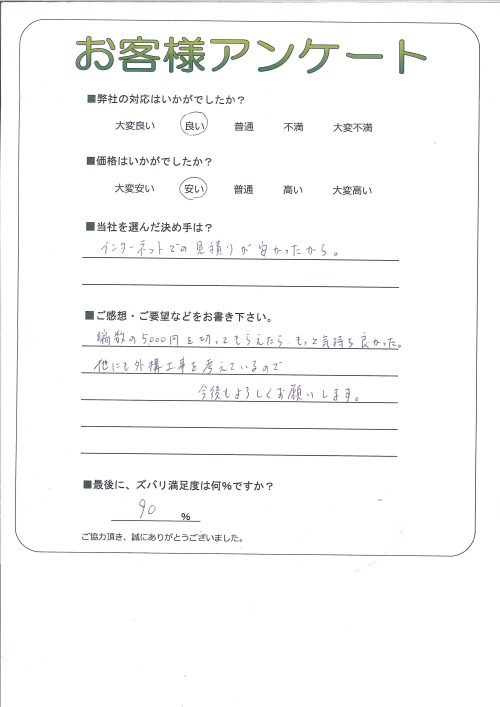 お客様アンケート
■弊社の対応はいかがでしたか？
大変良い 良い 普通 不満 大変不満
■価格はいかがでしたか？
大変安い 安い 普通 高い 大変高い
■当社を選んだ決め手は？
インターネットでの見積りが安かったから。
■ご感想・ご要望などをお書き下さい。
端数の5000円を切ってもらえたら、もっと気持ち良かった。
他にも外構工事を考えているので
今後もよろしくお願いします。
■最後に、ズバリ満足度は何%ですか？
90 %
ご協力頂き、誠にありがとうございました。